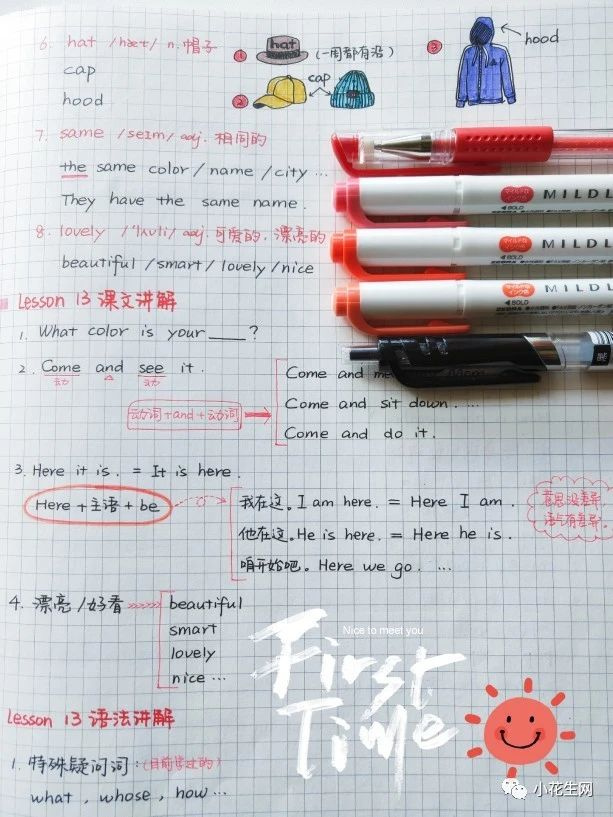 6. hat /hæt/ n. 帽子
cap
hood
① hat (一周都有沿)
② cap
③ hood
7. same /seɪm/ adj. 相同的
the same color / name / city ...
They have the same name.
8. lovely /'lʌvli/ adj. 可爱的, 漂亮的
beautiful / smart / lovely / nice
MILDL
BOLD
MILDL
BOLD
MILDL
BOLD
Lesson 13 课文讲解
1. What color is your ____ ?
2. Come and see it.
动 动
动词+and+动词
Come and me
Come and sit down. ...
Come and do it.
3. Here it is. = It is here.
Here + 主语 + be
我在这。I am here. = Here I am.
他在这。He is here. = Here he is.
咱开始吧。Here we go. ...
意思没差异,
语气有差异。
4. 漂亮 / 好看 >>>>>>
beautiful
smart
lovely
nice ...
Nice to meet you
First
Time
Lesson 13 语法讲解
1. 特殊疑问词: (目前学过的)
what, whose, how ...
小花生网